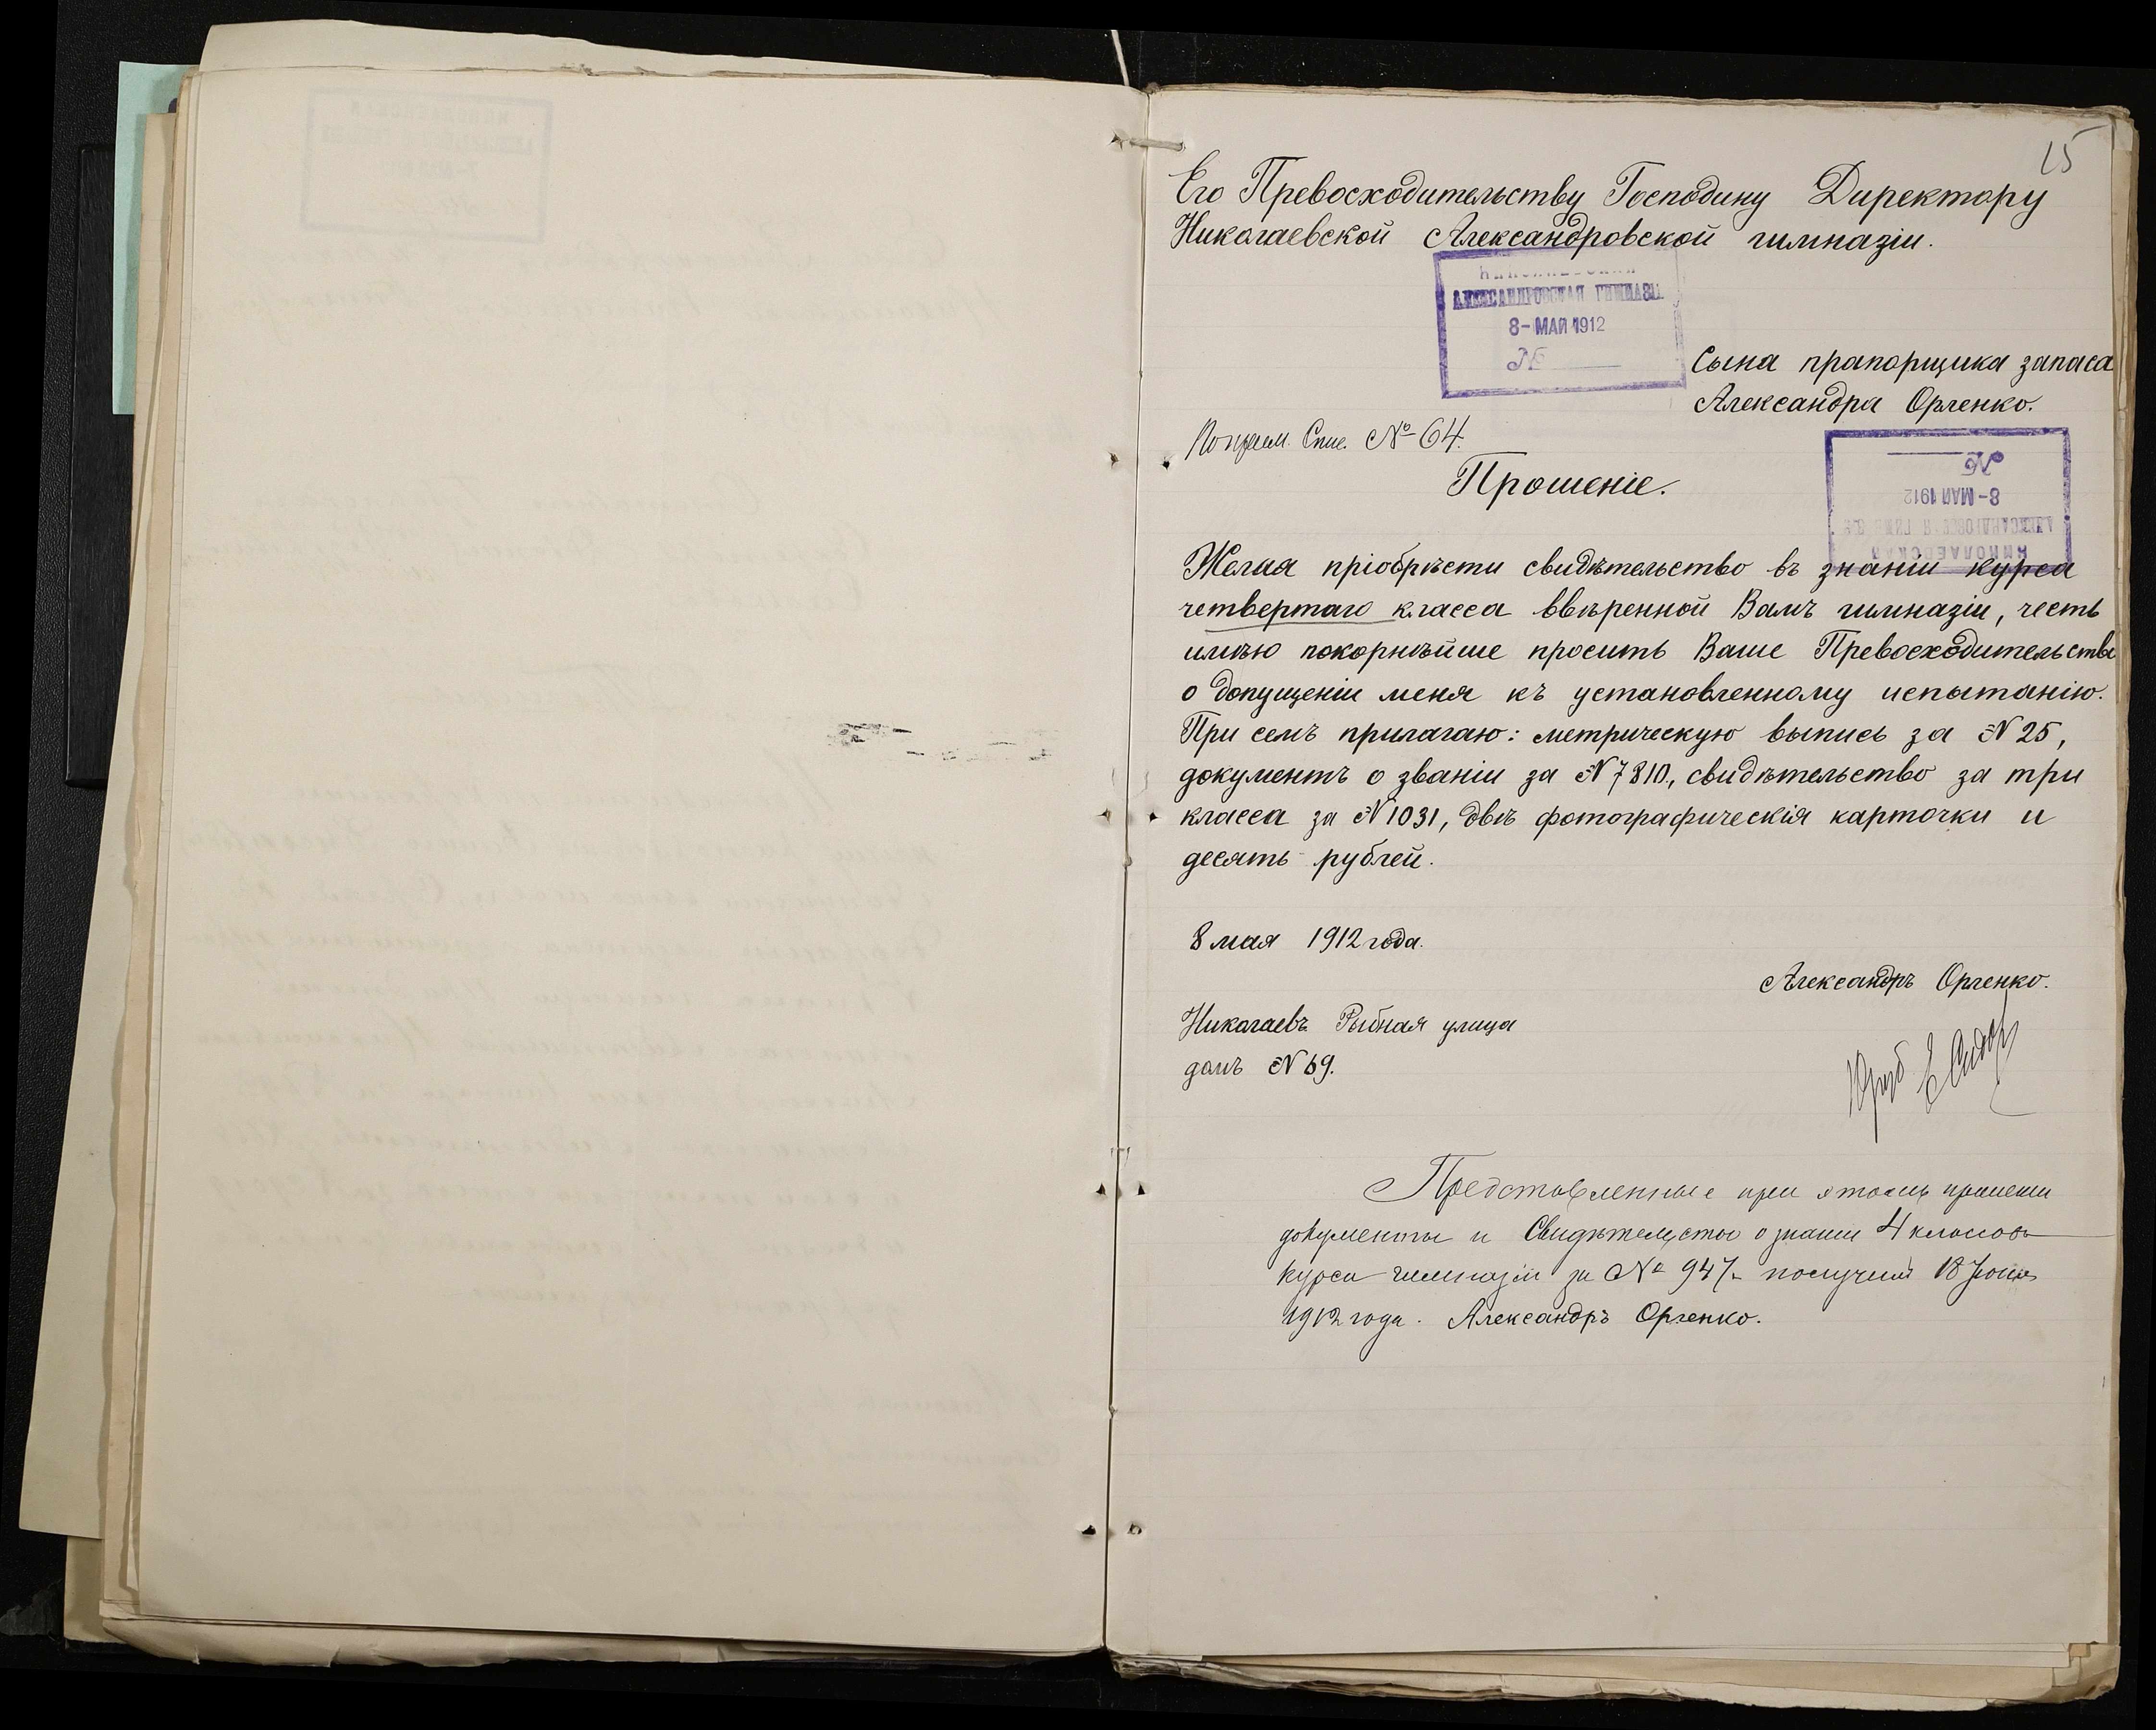 15
Его Превосходительству Господину Директору
Николаевской Александровской гимназіи.
НИКОЛАЕВСКАЯ
АЛЕКСАНДРОВСКАЯ ГИМНАЗІЯ
8-МАЯ 1912
№
Сына прапорщика запаса
Александра Орленко.
Спис. № 64.
Прошеніе.
№
8-МАЯ 1912
АЛЕКСАНДРОВСКАЯ ГИМНАЗІЯ
НИКОЛАЕВСКАЯ
Желая пріобрѣсти свидѣтельство въ знаніи курса
четвертаго класса ввѣренной Вамъ гимназіи, честь
имѣю покорнѣйше просить Ваше Превосходительство
о допущеніи меня къ установленному испытанію.
При семъ прилагаю: метрическую выпись за № 25,
документъ о званіи за № 7810, свидѣтельство за три
класса за № 1031, двѣ фотографическія карточки и
десять рублей.
8 мая 1912 года.
Александръ Орленко.
Николаевъ Рыбная улица
домъ № 69.
Представленные при этомъ прошеніи
документы и Свидѣтельство о знаніи 4 классовъ
курса гимназіи за № 947 получилъ 18 Іюня
1912 года. Александръ Орленко.